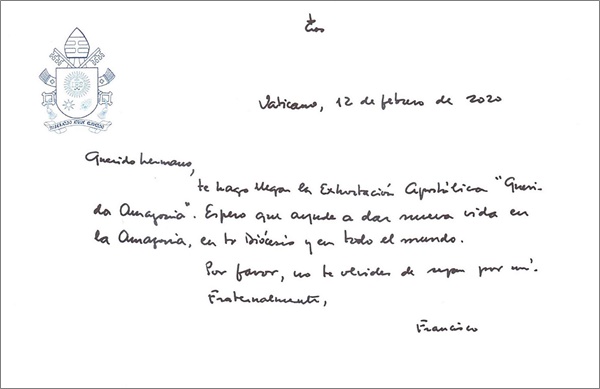 Vaticano, 12 de febrero de 2020
Querido hermano,
te hago llegar la Exhortación Apostólica "Queri-
da Amazonia". Espero que ayude a dar nueva vida en
la Amazonia, en tu Diócesis y en todo el mundo.
Por favor, no te olvides de rezar por mí.
Fraternalmente,
Francisco